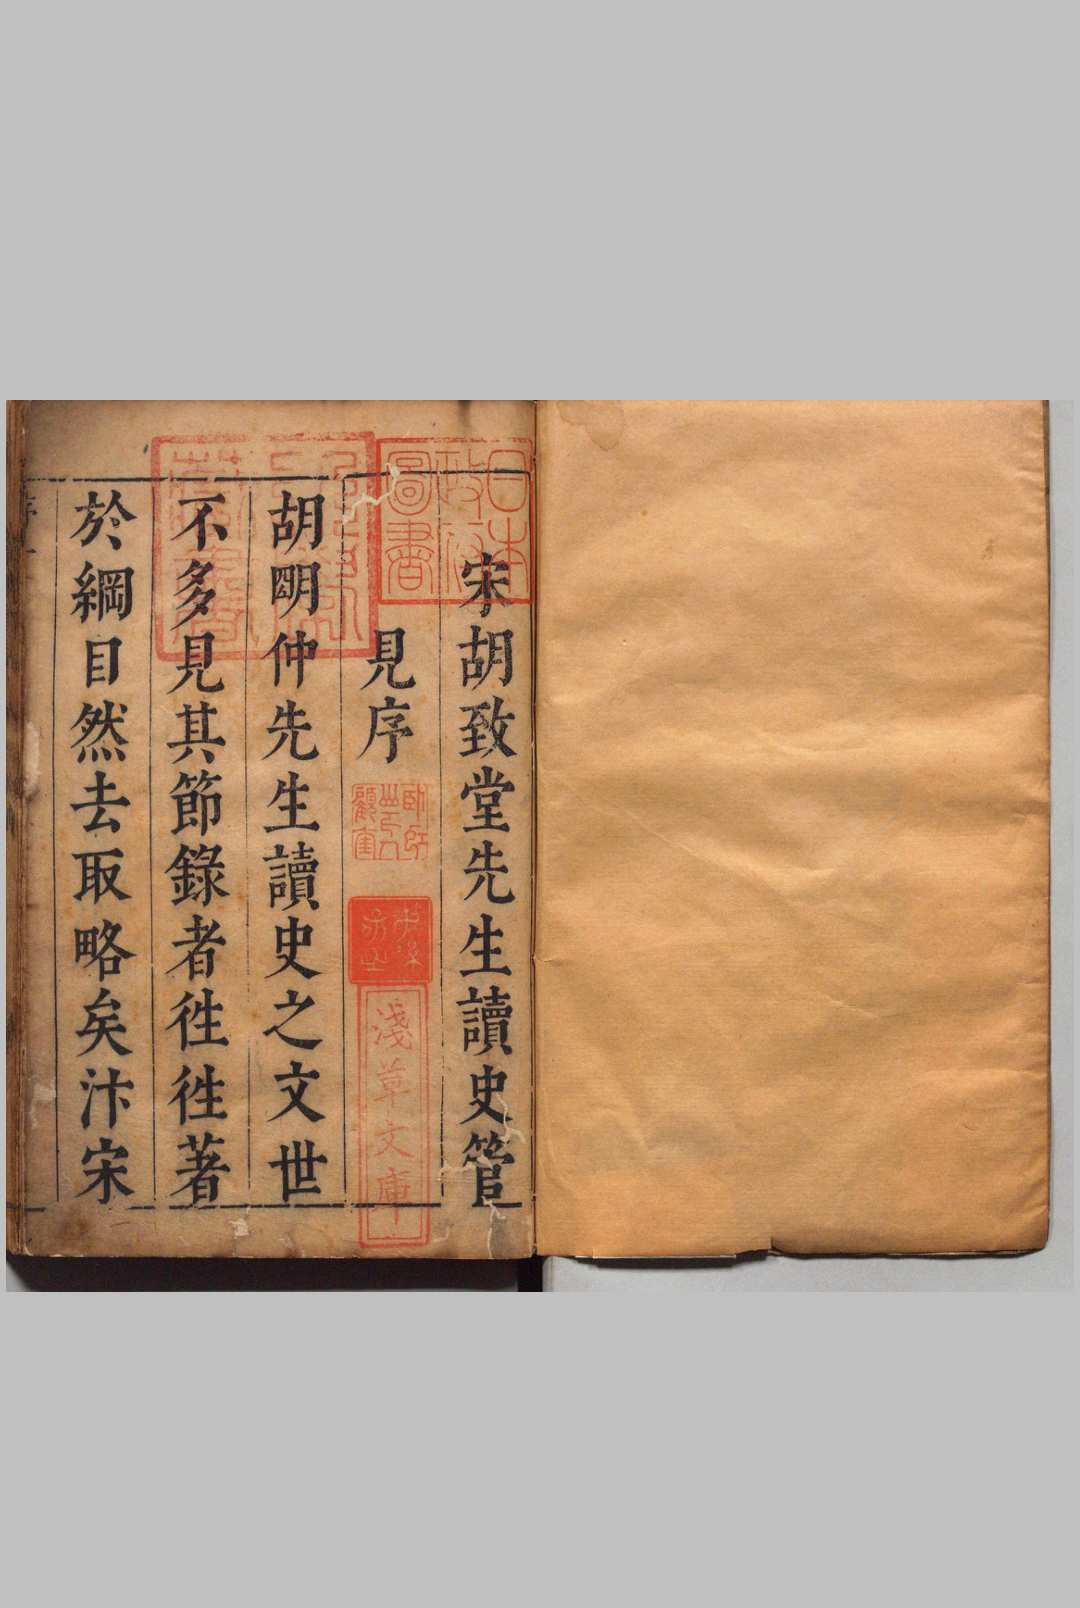 宋胡致堂先生讀史管
見序
胡明仲先生讀史之文世
不多見其節錄者徃徃著
於綱目然去取略矣汴宋
日本
政府
圖書
淺草文庫